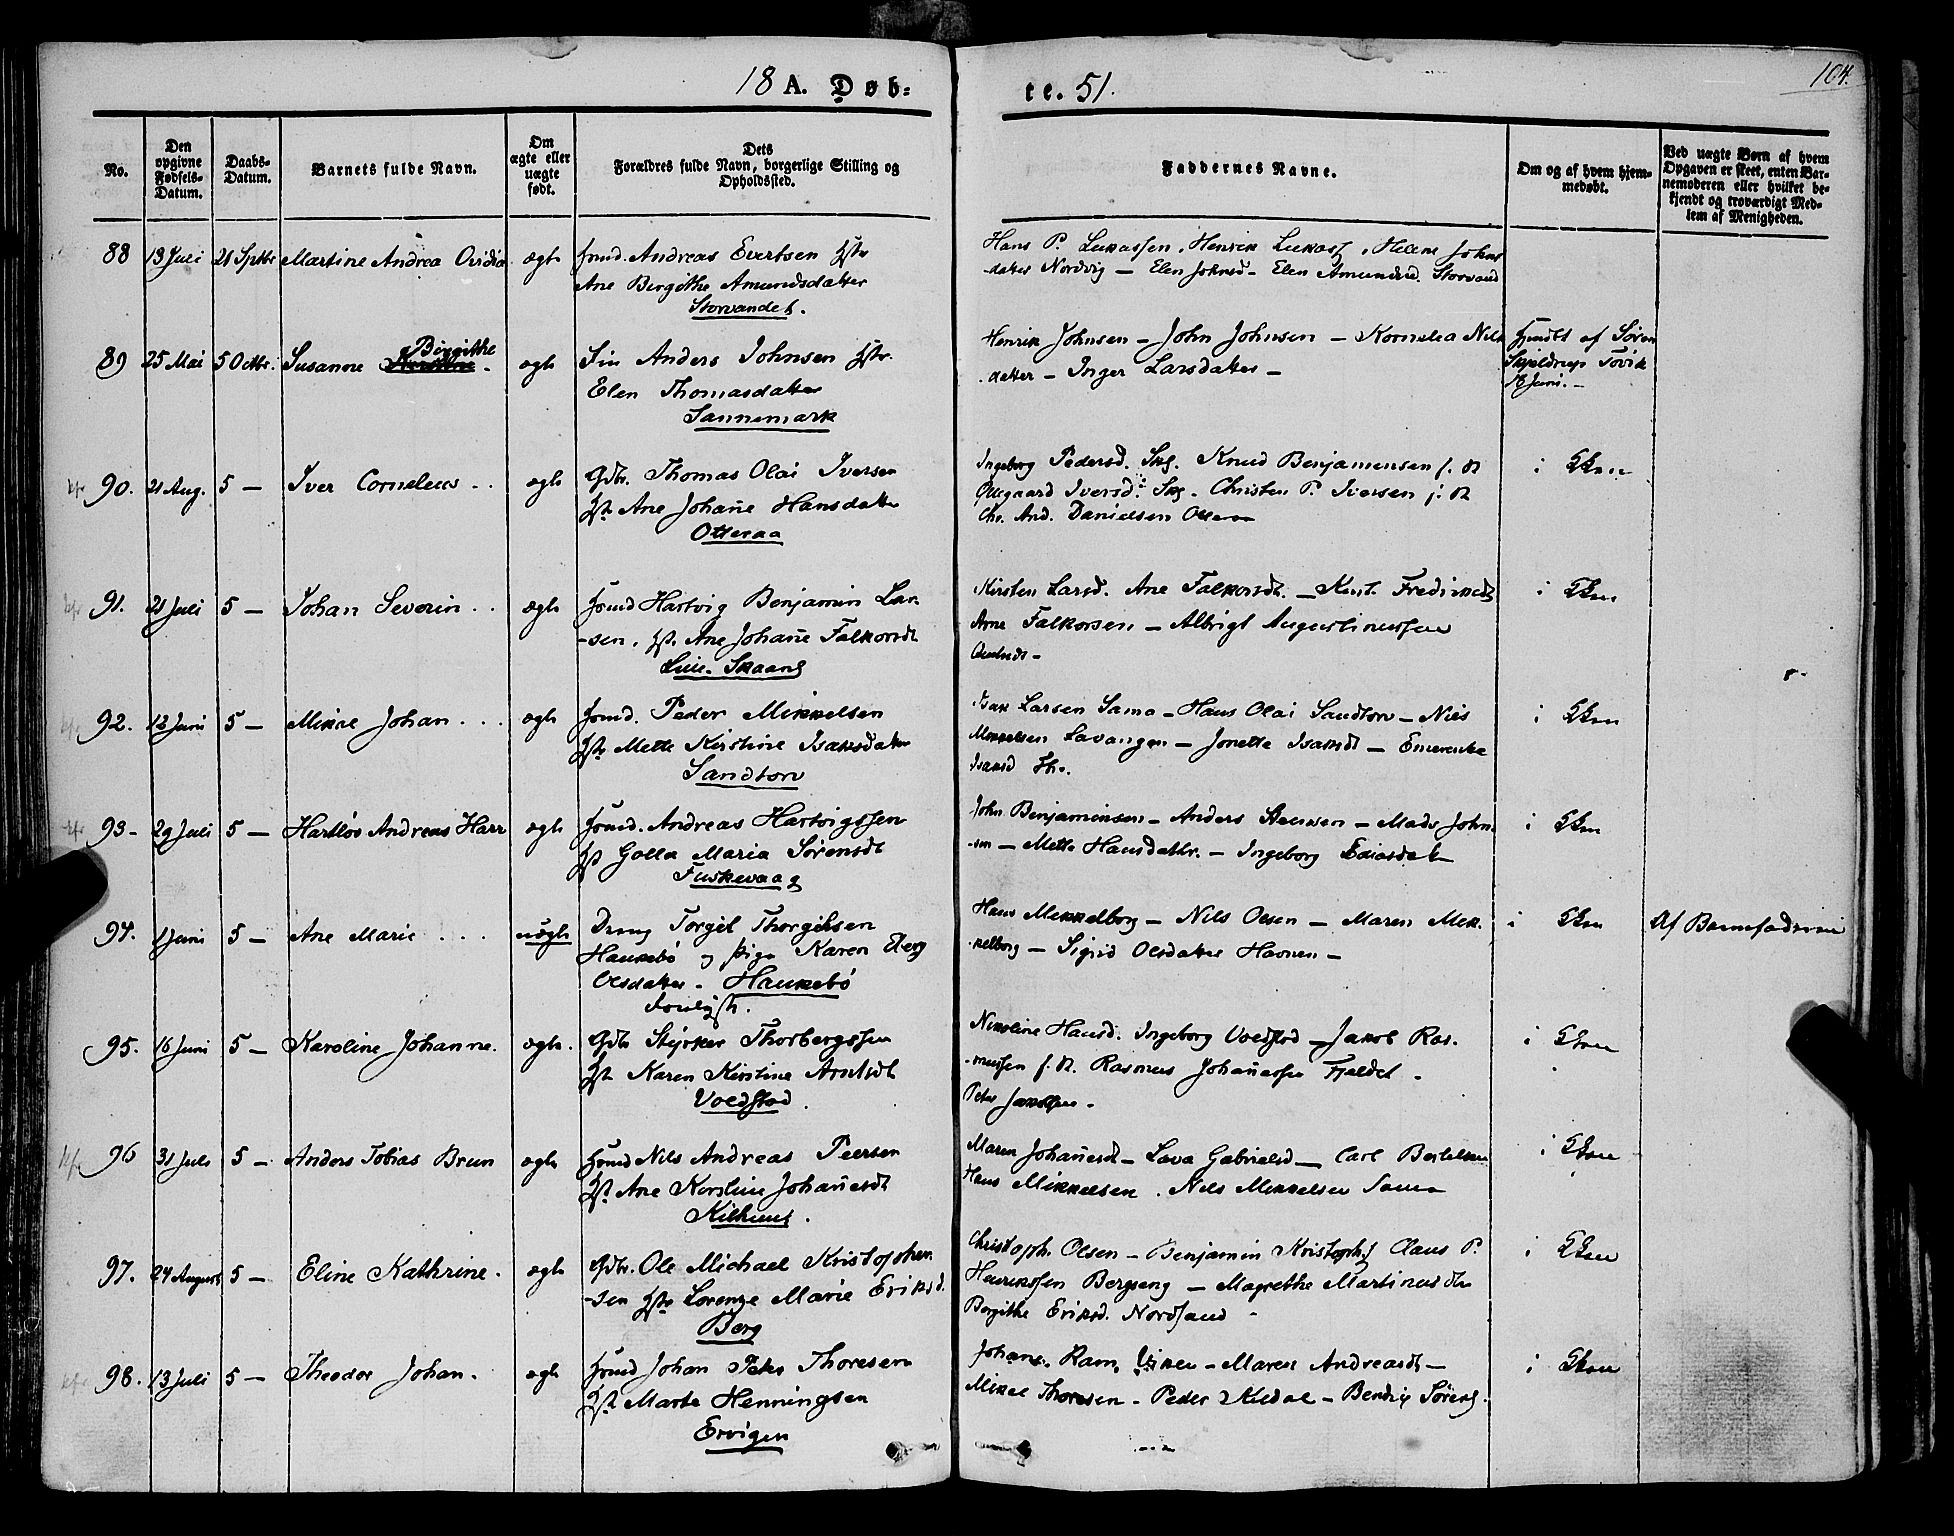 18 A. Døb=
te. 51.
104.
No.
Den opgivne Fødsels-Datum.
Daabs-Datum.
Barnets fulde Navn.
Om ægte eller uægte født.
Dets Forældres fulde Navn, borgerlige Stilling og Opholdssted.
Faddernes Navne.
Om og af hvem hjem-
medøbt.
Ved uægte Børn af hvem
Opgaven er skeet, enten Bar-
nemoderen eller hvilket be-
kjendt og troværdigt Med-
lem af Menigheden.
88 13 Juli 21 Septbr Martine Andrea Ovidia ægte
Andreas Evertsen Hstr
Ane Birgithe Amundsdatter
Storvandet.
Hans P. Lukassen, Henrik Lukass, Helene Johns
datter Nordvig – Elen Johnsd – Elen Amundsd. Storvand
89 25 Mai 5 Octbr. Susanne Birgithe ægte
Anders Johnsen Hstr.
Elen Thomasdatter
Sannemark
Henrik Johnsen – John Johnsen – Kornelia Nils
datter – Inger Larsdatter –
Hjmdbt af Søren
Skjeldrup Tovik
18 Juni. –
90. 21 Aug. 5 – Iver Cornelius . . ægte
Gdbr. Thomas Olai Iversen
Hst. Ane Johañe Hansdatter
Otteraa
Ingeborg Pedersd. Knud Benjamensen
Iversd. Christen P. Iversen
Chr. And. Danielsen
i Kken
91. 21 Juli 5 – Johan Severin . . ægte
Hmd Hartvig Benjamin Lar
-sen. Hst. Ane Johañe Falkorsdt
Kirsten Larsd. Ane Falkorsdt. –
Arne Falkorsen – Albrigt Augustinussen
i Kken
92. 12 Juni 5 – Mikal Johan . . . ægte
Hmd. Peder Mikkelsen
Hstr Mette Kirstine Isaksdatter
Sandtorv
Isak Larsen Sama – Hans Olai Sandtorv – Niels
Mikkelsen Lavangen – Jonette Isaksdt –
Isaksd
i Kken
93 – 29 Juli 5 – Hartløv Andreas Harr ægte
Hmd. Andreas Hartvigssen
Hst Golla Maria Sørensdt
Fuskevaag
John Benjaminsen – Anders – Mads John
sen – Mette Hansdatter. – Ingeborg
i Kken
94. 1 Juni 5 – Ane Marie . . . . uægte
Dreng Torgil Thorgilsen
Haukebø og Pige Karen
Olsdatter – Haukebø
Hans Mikkelborg – Nils Olsen – Maren Mik
kelborg – Sigrid Olsdatter Havnen –
i Kken
Af Barnefaderen
95. 16 Juni 5 – Karoline Johanne. ægte.
Gdbr Styrker Thorbergssen
Hst Karen Kirstine Arntsdt
Voldstad.
Nikoline Hansd. Ingeborg Voldstad – Jakob Ras.
mussen Rasmus Johañessen Fjeldet –
Peter
i Kken
96 31 Juli 5 – Anders Tobias Brun ægte
Hmd Nils Andreas Peersen
Hst. Ane Kirstine Johañesdt
Kilhuus.
Maren Johañesdt – Lava Gabrielsd – Carl Bertelsen
Hans Mikkelsen. Nils Mikkelsen Sama
i Kken
97. 24 August 5 – Eline Kathrine. ægte
Gdbr. Ole Michael Kristopher
-sen Hstr Lorenze Marie Eriksd.
Berg
Christoph. Olsen – Benjamin Claus P.
Henrikssen Bergseng – Magrethe Martinusdtr
Birgithe Eriksd. Nordsand –
i Kken
98. 13 Juli 5 – Theodor Johan. ægte
Hmd Johan Peter Thoresen
Hst. Marte Henningsen
Ervigen
Ram, – Maren Andreasdt –
Mikal Thoresen – Peder – Søreng.
i Kken